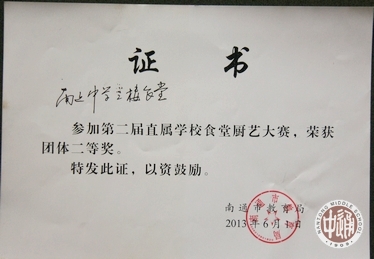 证 书
参加第二届直属学校食堂厨艺大赛，荣获
团体二等奖。
特发此证，以资鼓励。
南通市教育局
2013年6月1日
NANTONG MIDDLE SCHOOL
1909